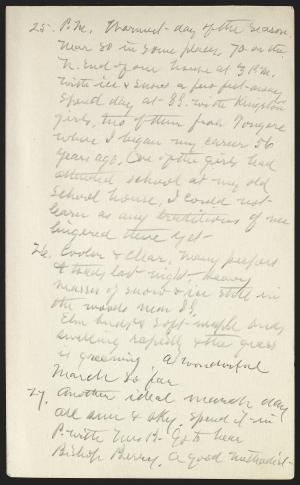 25. P.M. Warmest day of the season.
Near 80 in some places, 70 on the
N. End of our house at 3 P.M.
with ice & snow a few feet away
Spend day at S.S. with Kingston
girls, two of them from Tongore
where I began my career 56
years ago. One of the girls had
attended school at my old
School house, I could not
learn as any traditions of me
lingered there yet -
26. Cooler & clear. Many peepers
& toads last night - heavy
masses of snow & ice still in
the woods near S.S.
Elm buds & soft-maple buds
swelling rapidly & the grass
is greening. A wonderful
March so far
27. Another ideal march day
all sun & sky. Spend it in
P. with Mrs B. Go to hear
Bishop Berry, a good methodist -